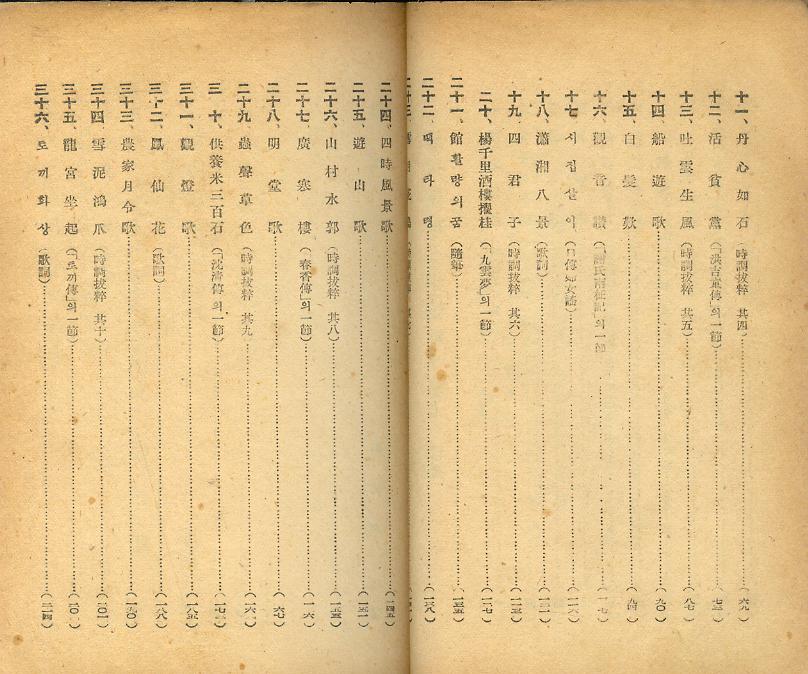 十一、丹心如石 (時調拔粹 其四) (六九)
十二、活貧黨 (「洪吉童傳」의一節) (七三)
十三、吐雲生風 (時調拔粹 其五) (八七)
十四、船遊歌 (九〇)
十五、白髮歎 (九四)
十六、觀音讚 (「謝氏南征記」의一節
十七、시집살이
十八、瀟湘八景 (歌詞)
十九、四君子 (時調拔粹 其六)
二十、楊千里酒樓攫桂 (「九雲夢」의一節)
二十一、館활량의꿈 (隨筆)
二十二、떼타령 (一三八)
二十四、四時風景歌 (一四五)
二十五、遊山歌 (一五一)
二十六、山村水郭 (時調拔粹 其八)
二十七、廣寒樓 (「春香傳」의一節)
二十八、明堂歌
二十九、蟲聲草色 (時調拔粹 其九
三十、供養米三百石 (「沈淸傳」의一節)
三十一、觀燈歌 (一八五)
三十二、鳳仙花 (歌詞) (一八八)
三十三、農家月令歌 (一九〇)
三十四、雪泥鴻爪 (時調拔粹 其十)
三十五、龍宮坐起 (「토끼傳」의一節)
三十六、토끼화상 (歌詞) (二一四)